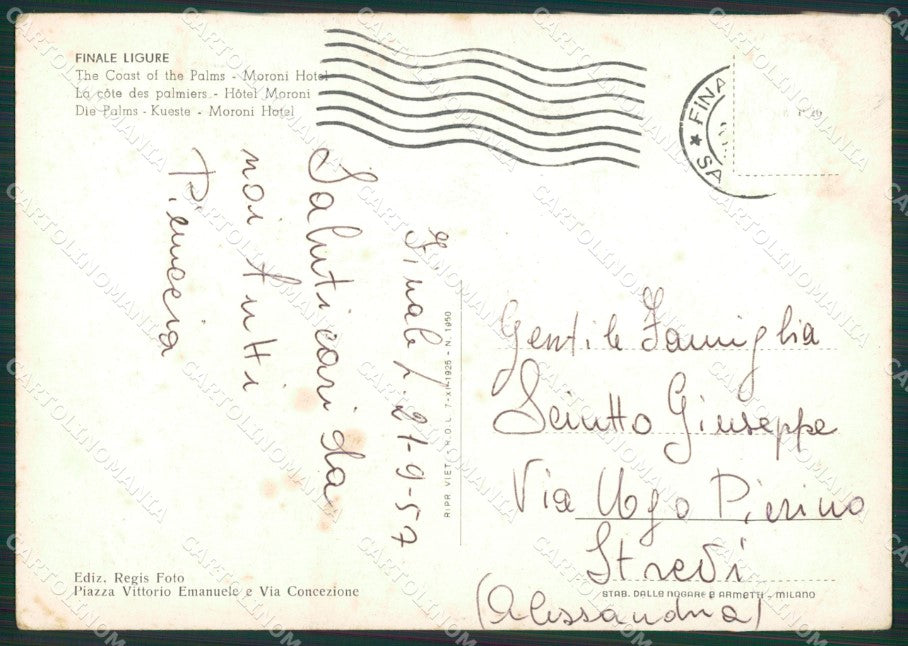 FINALE LIGURE
The Coast of the Palms - Moroni Hotel
La côte des palmiers - Hôtel Moroni
Die Palms - Kueste - Moroni Hotel
FINA
SA
Finale L. 21-9-57
Saluti cari da
noi tutti
RIPR. VIET. R.D.L. 7-XI-1925 - N. 1950
Gentile Famiglia
Sciutto Giuseppe
Via Ugo Pierino
Strevi
(Alessandria)
Ediz. Regis Foto
Piazza Vittorio Emanuele e Via Concezione
STAB. DALLE NOGARE E ARMETTI - MILANO
CARTOLINOMANIA